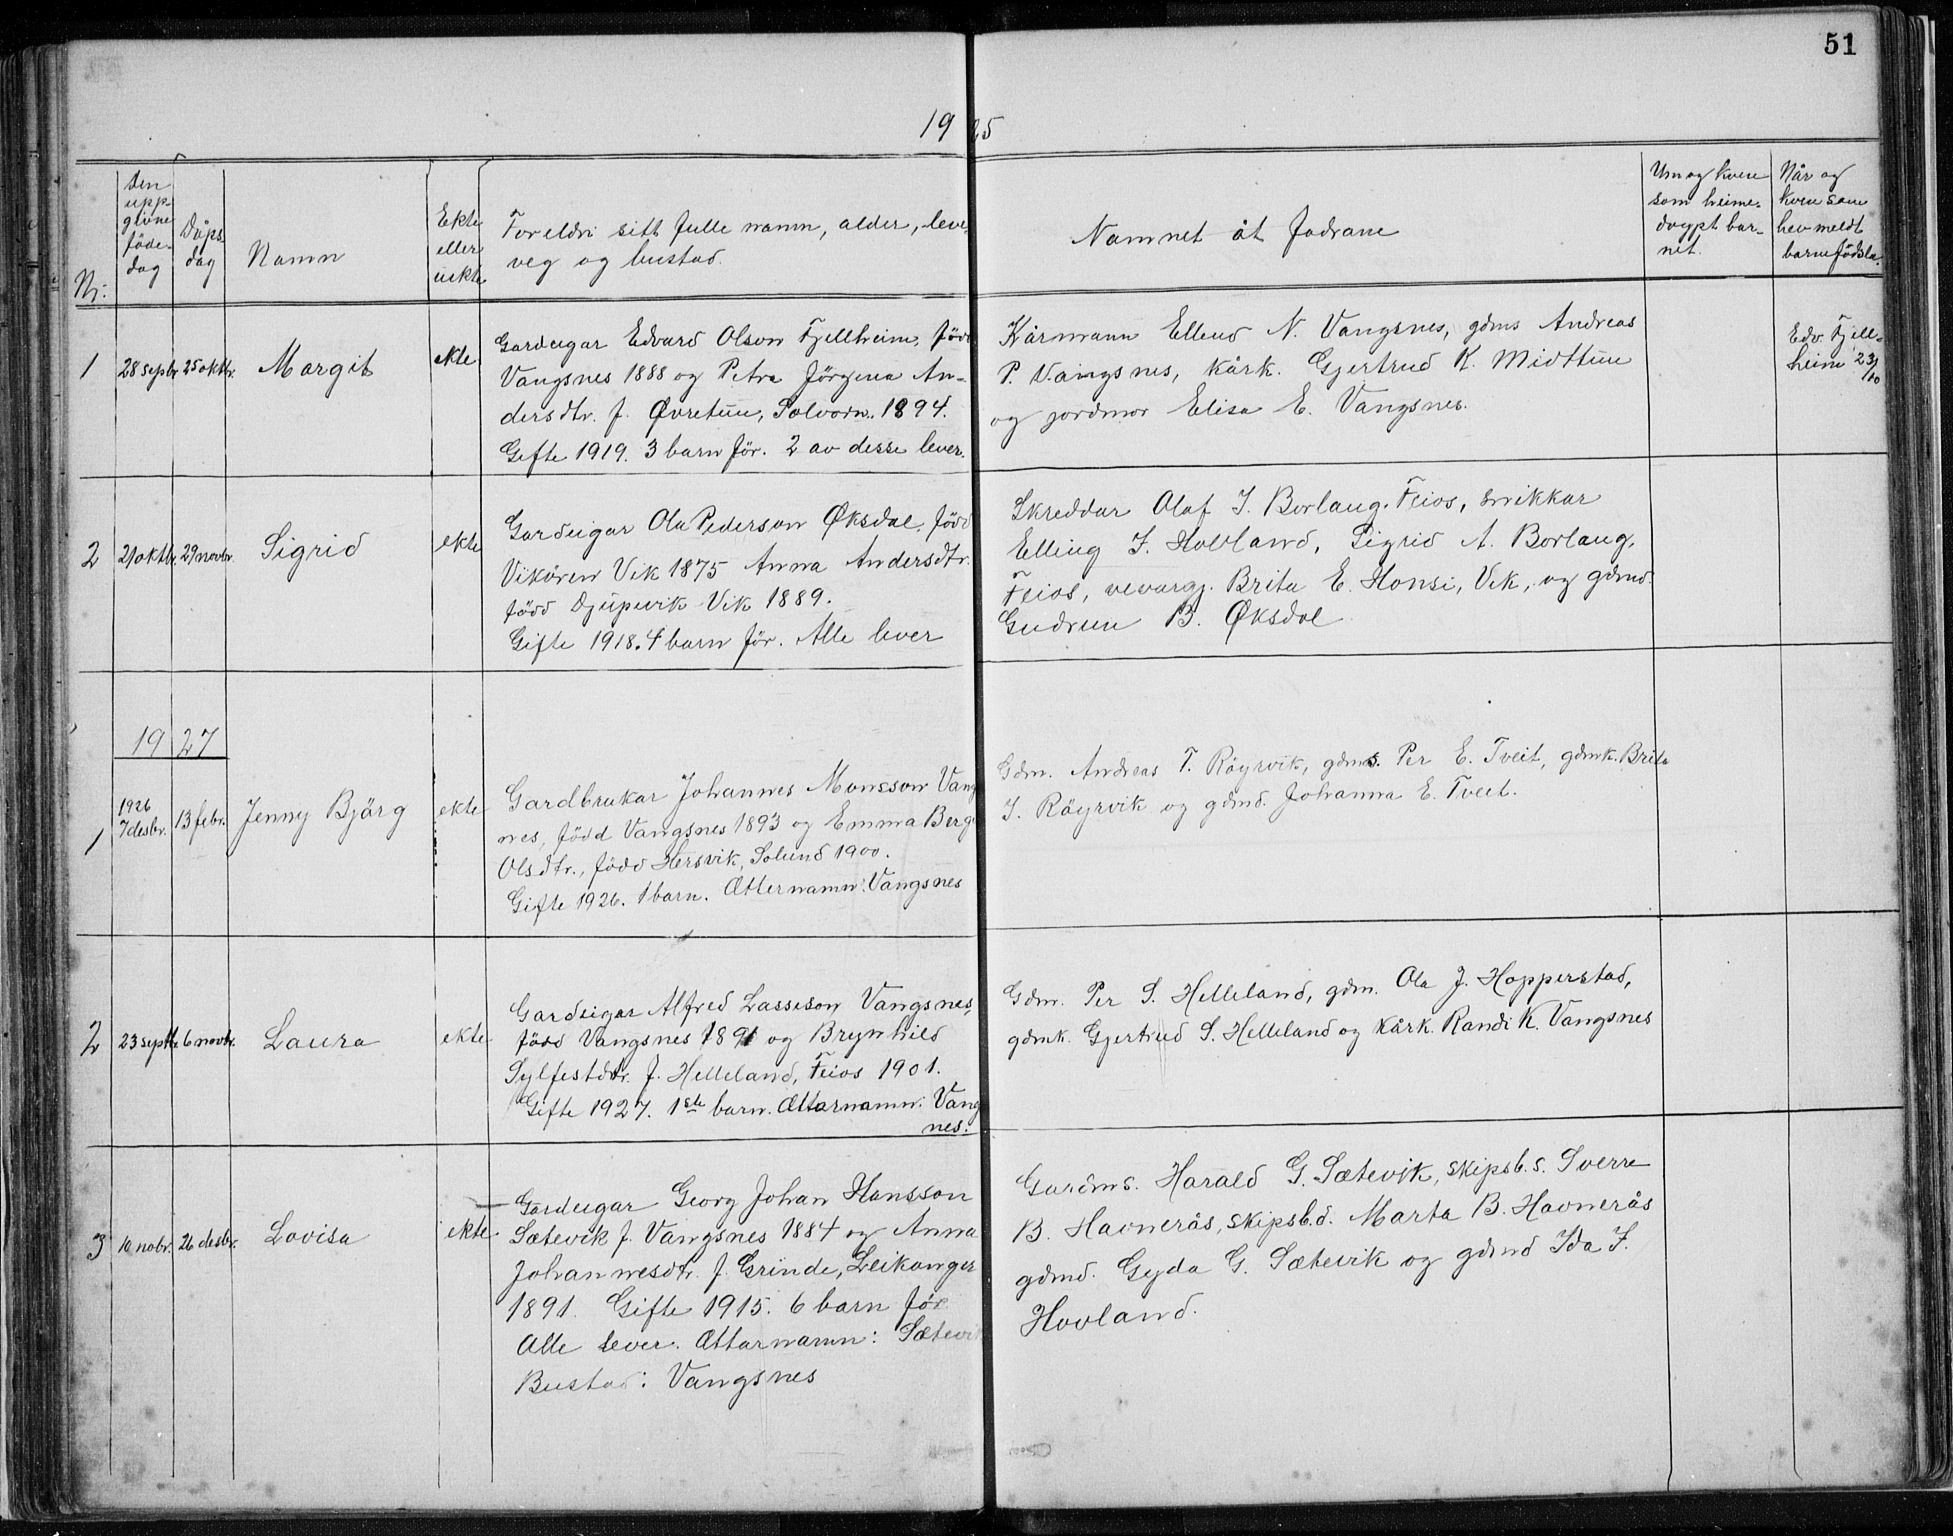 51
1925
Nr.
Den
upp-
givne
föde-
dag
Döps-
dag
Namn
Ekte
eller
uekte
Foreldri sitt fulle namn, alder, leve-
veg og bustad.
Namnet åt fadrane
Um og kven
som heime-
döypt bar-
net.
Når og
kven som
hev meldt
barnefödsla.
1
28 septbr.
25 oktbr.
Margit
ekte
Gardeigar Edvard Olson Fjellheim, född
Vangsnes 1888 og Petra Jörgina An-
dersdtr. f. Øvretun, Solvorn. 1894.
Gifte 1919. 3 barn för. 2 av desse lever.
Kårmann Ellend N. Vangsnes, gdms Andreas
P. Vangsnes, kårk. Gjertrud K. Midttun
og jordmor Elisa E. Vangsnes.
Edv. Fjell-
heim 23/10
2
21 oktbr.
29 novbr.
Sigrid
ekte
Gardeigar Ola Pederson Øksdal, född
Vikören Vik 1875 Anna Andersdtr.
född Djupevik Vik 1889.
Gifte 1918. 4 barn för. Alle lever
Skreddar Olaf I. Borlaug, Feios, snikkar
Elling J. Hovland, Sigrid A. Borlaug,
Feios, vevargj. Brita E. Honsi, Vik, og gdmd.
Gudrun B. Øksdal
1927
1
1926
7 desbr.
13 febr.
Jenny Bjärg
ekte
Gardbrukar Johannes Monsson Vang
nes, född Vangsnes 1893 og Emma Berg
Olsdtr., född Hersvik, Solund 1900.
Gifte 1926. 1 barn. Ætternamn: Vangsnes
Gdm. Andreas T. Röyrvik, gdms. Per E. Tveit, gdmk. Brita
I. Röyrvik og gdmd. Johanna E. Tveit.
2
23 septbr.
6 novbr.
Laura
ekte
Gardeigar Alfred Lasseson Vangsnes,
född Vangsnes 1891 og Brynhild
Sylfestdtr. f. Helleland, Feios 1901.
Gifte 1927. 1ste barn. Ættarnamn: Vang
nes.
Gdm. Per S. Helleland, gdm. Ola J. Hopperstad,
gdmk. Gjertrud S. Helleland og kårk. Randi K. Vangsnes
3
10 nobr.
26 desbr.
Lovisa
ekte
Gardeigar Georg Johan Hansson
Sætevik f. Vangsnes 1884 og Anna
Johannesdtr. f. Grinde, Leikanger
1891. Gifte 1915. 6 barn för
Alle lever. Ættarnamn: Sætevik
Bustad: Vangsnes
Gardms. Harald G. Sætevik, skipsb.s. Sverre
B. Havnerås, skipsb.d. Marta B. Havnerås
gdmd. Gyda G. Sætevik og gdmd Ida J.
Hovland.